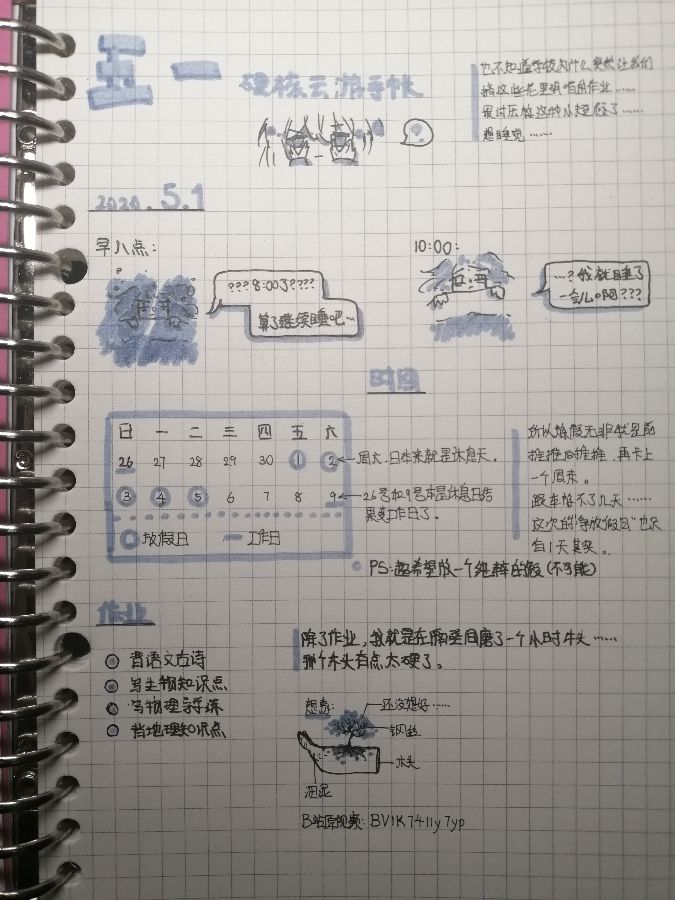 五一
硬核云游手帐
也不知道学校为什么突然让我们
搞这些花里胡哨的作业……
最讨厌搞这种小超级了……
想睡觉……
2020.5.1
早八点:
???8:00了????
算了继续睡吧…
10:00:
…?我就睡了
一会儿啊???
时图
日 一 二 三 四 五 六
26 27 28 29 30 1 2
3 4 5 6 7 8 9
放假日 工作日
周六.日本来就是休息天。
26号和9号本是休息日结
果变工作日了。
所以放假无非就是前
推推后推推,再卡上
一个周末。
跟本放不了几天……
这次的"争放假日"也只
有1天其实。
PS:超希望放一个纯粹的假(不可能)
作业
背语文古诗
写生物知识点
写物理导学练
背地理知识点
除了作业,我就是在隔壁间磨了一个小时木头……
那个木头有点太硬了。
想要:
还没想好……
钢丝
木头
泥
B站原视频: BV1K7411y7yp